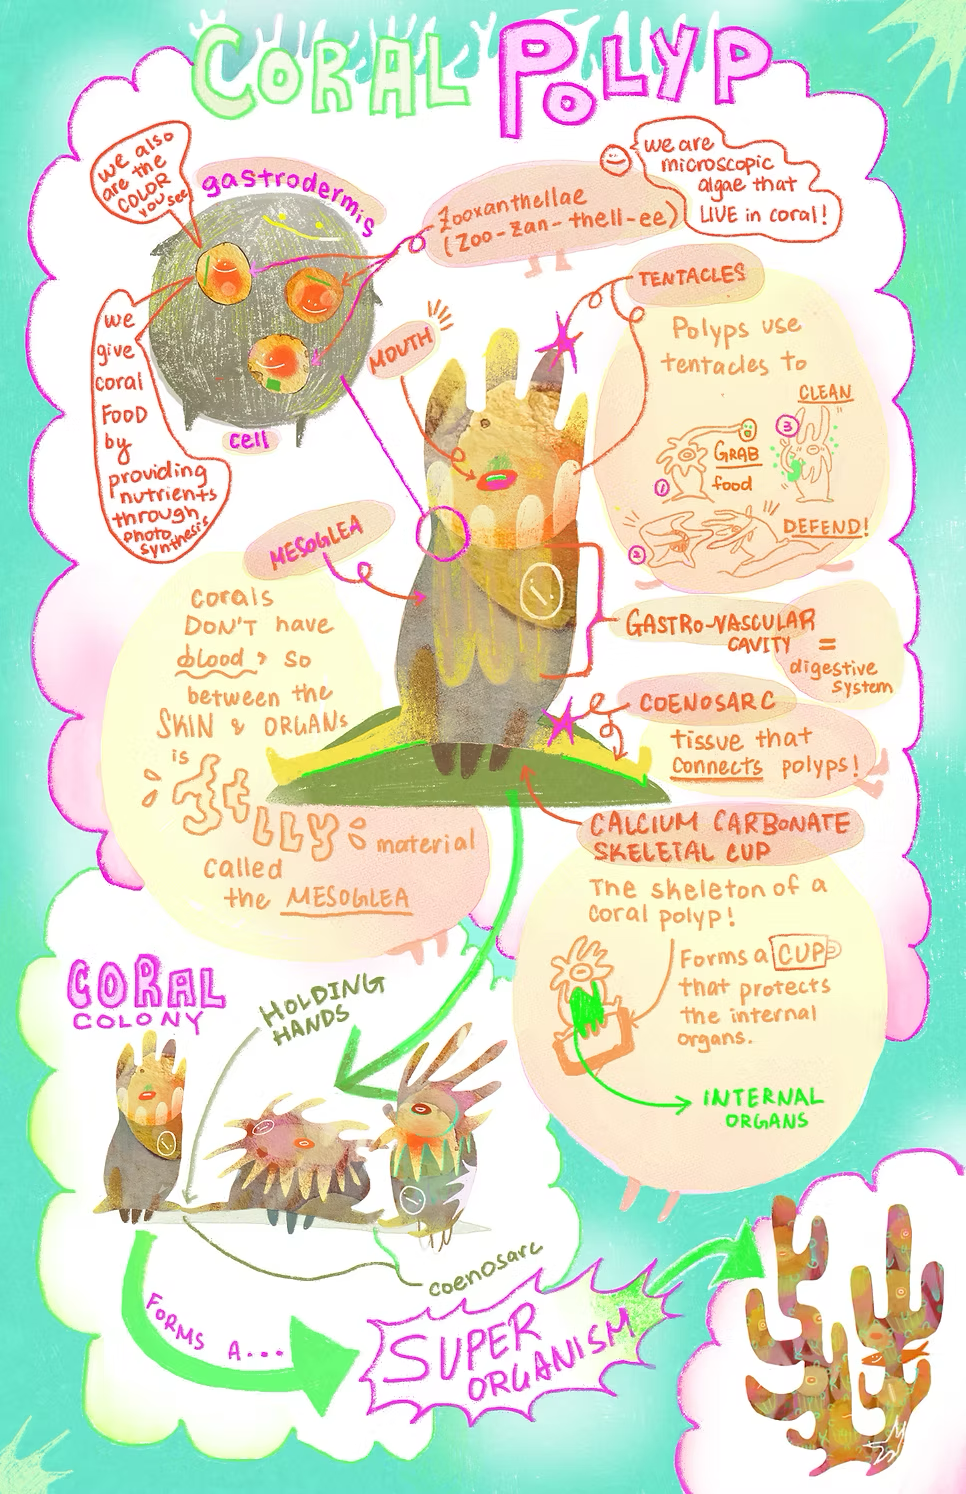 CORAL POLYP
we also
are the
COLOR
you see
gastrodermis
Zooxanthellae
(Zoo-zan-thell-ee)
we are
microscopic
algae that
LIVE in coral!
we
give
coral
FOOD
by
providing
nutrients
through
photo
synthesis
cell
MOUTH
TENTACLES
Polyps use
tentacles to
CLEAN
3
GRAB
food
1
DEFEND!
2
MESOGLEA
corals
DON'T have
blood, so
between the
SKIN & ORGANs
is
JELLY
material
called
the MESOGLEA
GASTRO-VASCULAR
CAVITY =
digestive
system
COENOSARC
tissue that
connects polyps!
CALCIUM CARBONATE
SKELETAL CUP
The skeleton of a
coral polyp!
Forms a CUP
that protects
the internal
organs.
INTERNAL
ORGANS
CORAL
COLONY
HOLDING
HANDS
coenosarc
FORMS A...
SUPER
ORGANISM